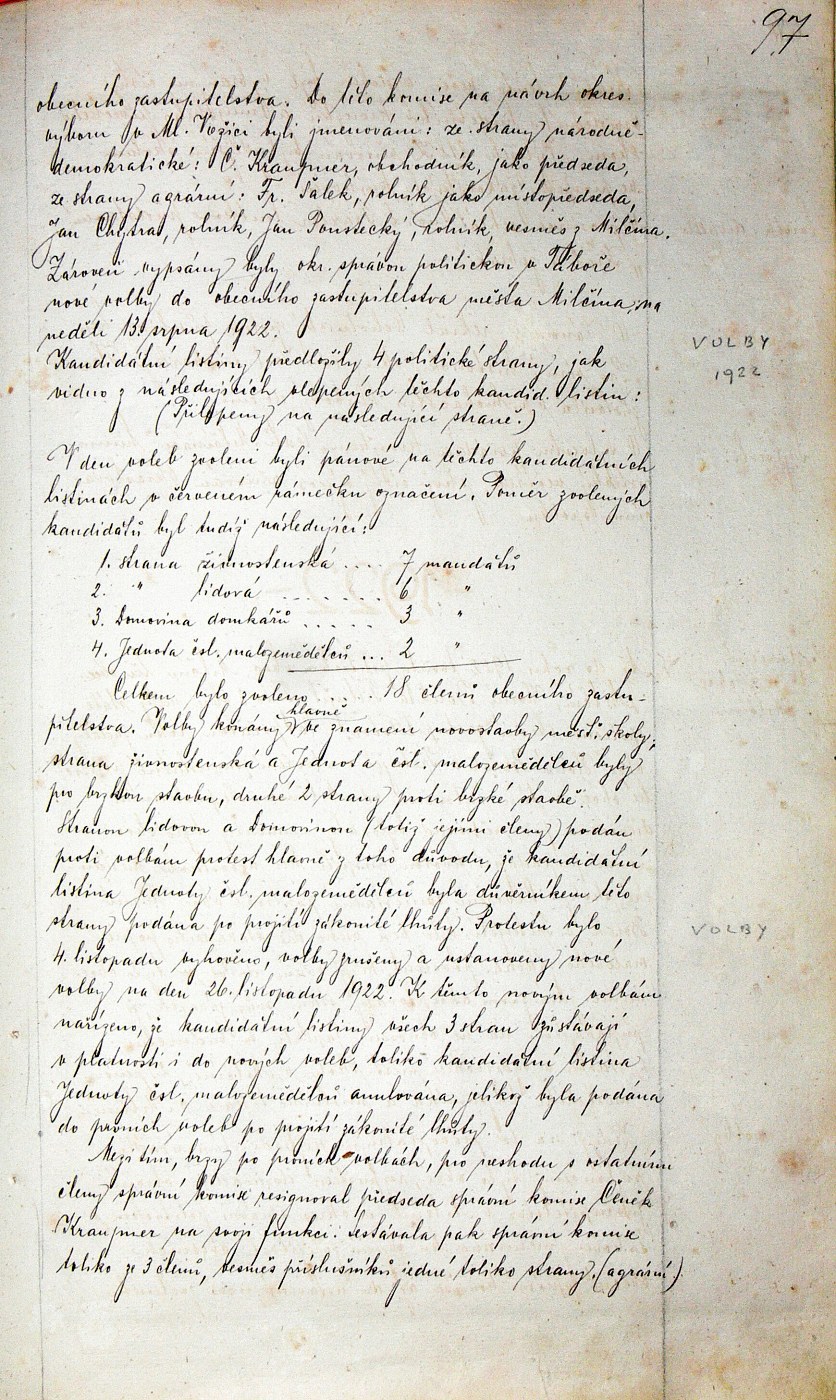 97
obecního zastupitelstva. Do této komise na návrh okres.
výboru v Ml. Vožici byli jmenováni: ze strany národně-
demokratické: Č. Kraupner, obchodník, jako předseda,
ze strany agrární: Fr. Šálek, rolník jako místopředseda,
Jan Chytra, rolník, Jan Poustecký, rolník, vesměs z Milčína.
Zároveň vypsány byly okr. správou politickou v Táboře
nové volby do obecního zastupitelstva města Milčína, na
neděli 13. srpna 1922.
VOLBY
1922
Kandidátní listiny předložily 4 politické strany, jak
vidno z následujících vlepených těchto kandid. listin:
(Přilepeny na následující straně.)
V den voleb zvoleni byli pánové na těchto kandidátních
listinách v červeném rámečku označení. Poměr zvolených
kandidátů byl tudíž následující:
1. strana živnostenská .... 7 mandátů
2. " lidová ....... 6 "
3. Domovina domkářů ..... 3 "
4. Jednota čsl. malozemědělců ... 2 "
Celkem bylo zvoleno ..... 18 členů obecního zastu-
pitelstva. Volby konány hlavně ve znamení novostavby měšť. školy;
strana živnostenská a Jednota čsl. malozemědělců byly
pro brzkou stavbu, druhé 2 strany proti brzké stavbě.
Stranou lidovou a Domovinou (totiž jejími členy) podán
proti volbám protest hlavně z toho důvodu, že kandidátní
listina Jednoty čsl. malozemědělců byla důvěrníkem této
strany podána po projití zákonité lhůty. Protestu bylo
VOLBY
4. listopadu vyhověno, volby zrušeny a ustanoveny nové
volby na den 26. listopadu 1922. K těmto novým volbám
nařízeno, že kandidátní listiny všech 3 stran zůstávají
v platnosti i do nových voleb, toliko kandidátní listina
Jednoty čsl. malozemědělců anulována, jelikož byla podána
do prvních voleb po projití zákonité lhůty.
Mezitím, brzy po prvních volbách, pro neshodu s ostatními
členy správní komise resignoval předseda správní komise Čeněk
Kraupner na svoji funkci. Sestávala pak správní komise
toliko ze 3 členů, vesměs příslušníků jedné toliko strany. (agrární.)